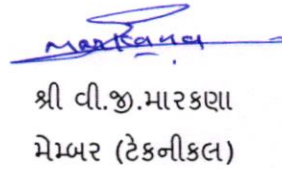 શ્રી વી.જી.મારકણા
મેમ્બર (ટેકનીકલ)